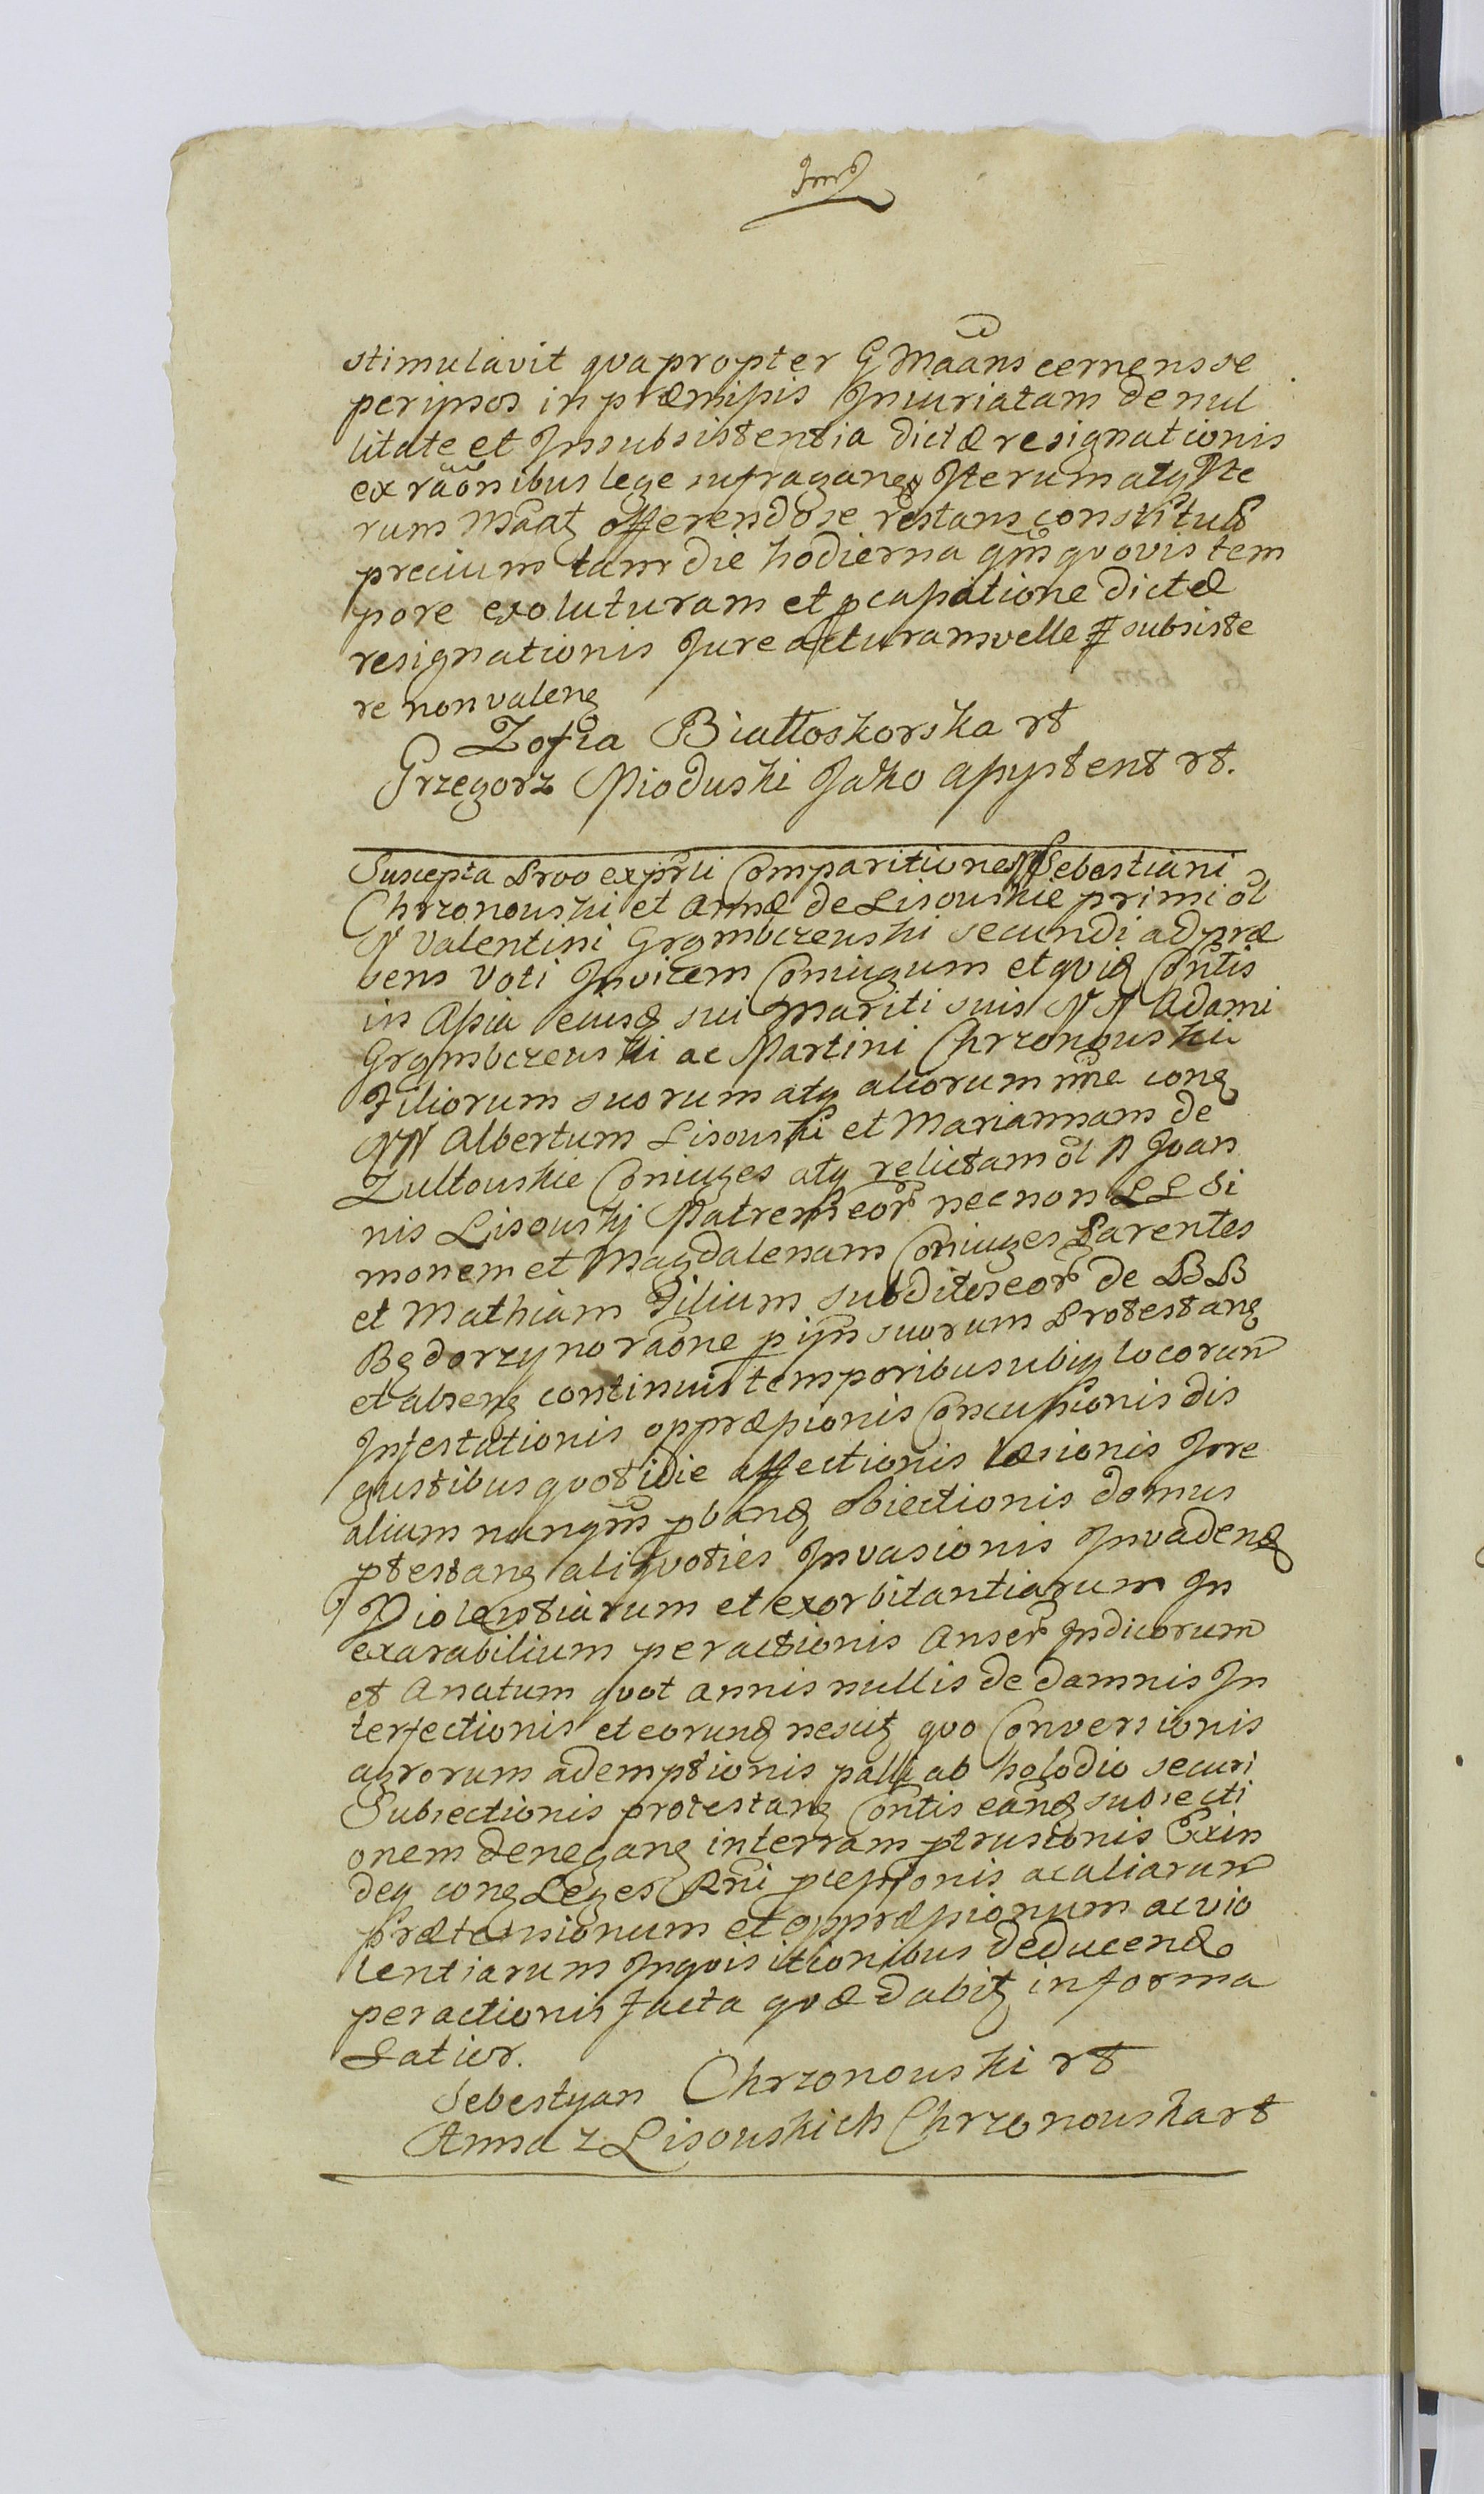 stimulavit qvapropter G Maans cernens se
per ipsos in præmissis Iniuriatam de nul
litate et Inssubsistentia dictæ resignationis
ex raonibus lege sufragane Iterum atq Ite
rum Maat offerendo se restans constitut
precium tam die hodierna qm qvovis tem
pore exoluturam et p casatione dictæ
resignationis Iure acturam velle subsiste
re non valen
Zofia Białłoskorska rt
Grzegorz Mioduski Jako assystent rt.
Suscepta Prvo ex prli Comparitione N Sebastiani
Chrzonouski et Annæ de Lisouskie primi ol
N Valentini Grąmbczeuski secundi ad præ
sens Voti Invicem Coniugum et qvid Contis
in Assia eiusd sui Mariti suis N N Adami
Grąmbczeuski ac Martini Chrzonouski
Filiorum suorum atq aliorum nne con
NN Albertum Lisouski et Mariannam de
Zułtouskie Coniuges atq relictam ol N Ioan
nis Lisouskj Matrem eor nec non LL Si
monem et Magdalenam Coniuges Parentes
et Mathiam Filium subditos eor de BB
Będorzyno raone p ijm suorum Protestan
et absen continuis temporibus ubiq locorum
Infestationis oppræssionis Concussionis dis
gustibus qvotidie affectionis læsionis Fore
alium nunqm pband obiectionis domus
ptestan aliqvoties Invasionis Invadend
Violentiarum et exorbitantiarum In
exarabilium peractionis Anser Indicorum
et Anatum qvot annis nullis de damnis In
terfectionis et eorund nescit qvo Conversionis
agrorum ademptionis palli ab holodio securi
Subiectionis protestan Contis eand subiecti
onem denegan in terram ptrusionis Exin
deq con Leges Rni pcessionis ac aliarum
prætensionum et oppræssionum ac vio
lentiarum Inqvisitionibus deducend
peractionis facta qvæ dabit in forma
Latior.
Sebestyan Chrzonouski rt
Anna z Lisouskich Chrzonouska rt